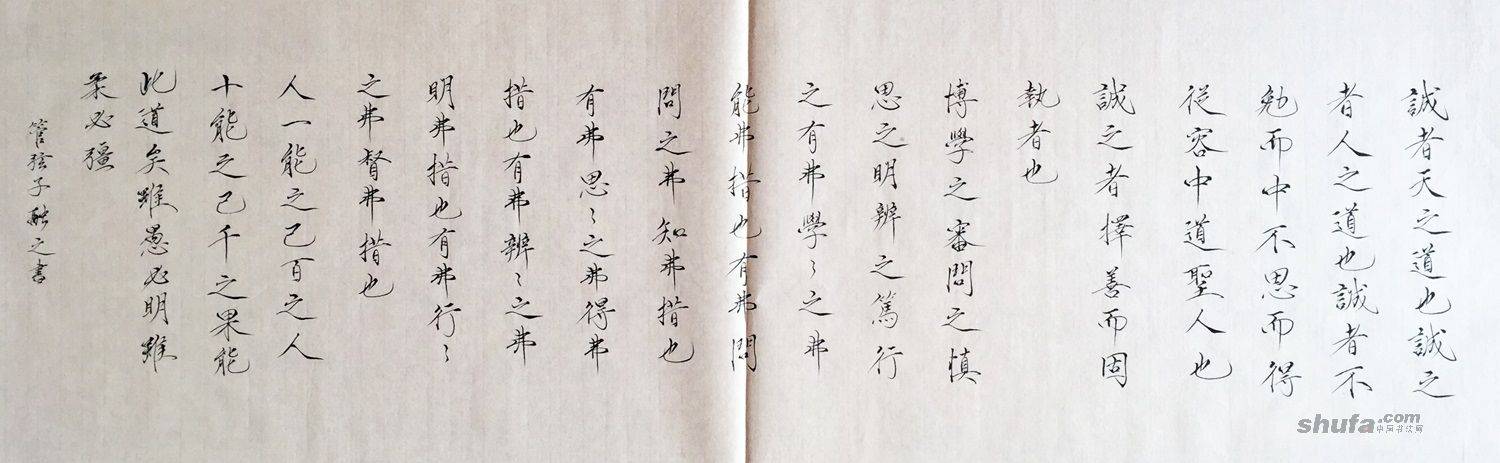 誠者天之道也誠之
者人之道也誠者不
勉而中不思而得
從容中道聖人也
誠之者擇善而固
執者也
博學之審問之慎
思之明辨之篤行
之有弗學〻之弗
能弗措也有弗問
問之弗知弗措也
有弗思〻之弗得弗
措也有弗辨〻之弗
明弗措也有弗行〻
之弗督弗措也
人一能之己百之人
十能之己千之果能
此道矣雖愚必明雖
柔必彊
管弦子融之書
shufa.com
中国书法网